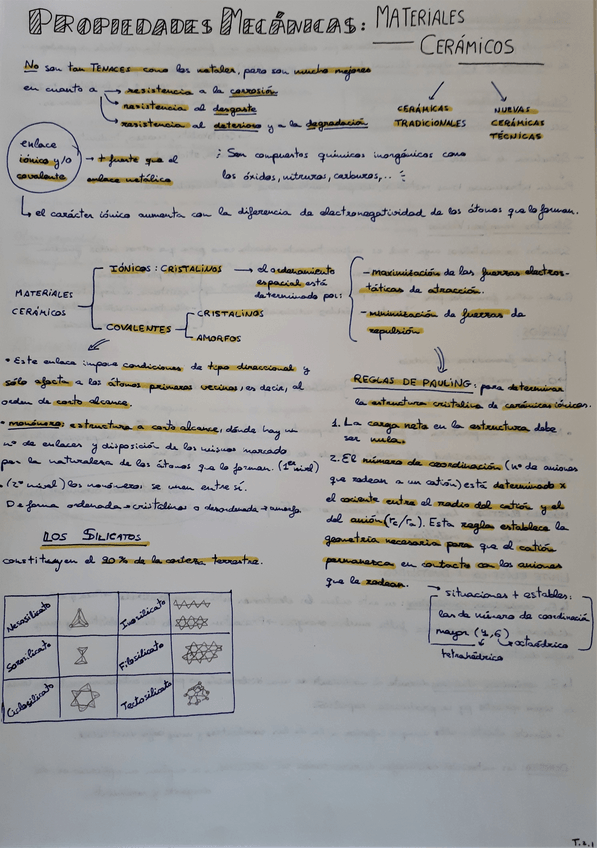 PROPIEDADES MECÁNICAS: MATERIALES
CERÁMICOS
No son tan TENACES como los metales, pero son mucho mejores
en cuanto a → resistencia a la corrosión
resistencia al desgaste
resistencia al deterioro y a la degradación
CERÁMICAS
TRADICIONALES
NUEVAS
CERÁMICAS
TÉCNICAS
enlace
iónico y/o
covalente
→ + fuerte que el
enlace metálico
; Son compuestos químicos inorgánicos como
los óxidos, nitruros, carburos,...
el carácter iónico aumenta con la diferencia de electronegatividad de los átonos que lo forman.
MATERIALES
CERÁMICOS
IÓNICOS: CRISTALINOS → el ordenamiento
espacial está
determinado por:
- maximización de las fuerzas electros-
táticas de atracción.
- minimización de fuerzas de
repulsión
COVALENTES
CRISTALINOS
AMORFOS
• Este enlace impone condiciones de tipo direccional y
sólo afecta a los átonos primeros vecinos, es decir, al
orden de corto alcance.
• monómeros: estructura a corto alcance, dónde hay un
nº de enlaces y disposición de los mismos marcado
por la naturaleza de los átonos que lo forman. (1er nivel)
• (2º nivel) los monómeros se unen entre sí.
De forma ordenada → cristalinos o desordenada → amorfa.
LOS SILICATOS
constituyen el 90% de la corteza terrestre.
Nesosilicato
Inosilicato
Sorosilicato
Filosilicato
Ciclosilicato
Tectosilicato
REGLAS DE PAULING: para determinar
la estructura cristalina de cerámicas iónicas.
1. La carga neta en la estructura debe
ser nula.
2. El número de coordinación (nº de aniones
que rodean a un catión) está determinado x
el cociente entre el radio del catión y el
del anión (rc/ra). Esta regla establece la
geometría necesaria para que el catión
permanezca en contacto con los aniones
que le rodean.
→ situaciones + estables:
las de número de coordinación
mayor (4,6)
→ octaédrico
tetraédrico
T.2.1